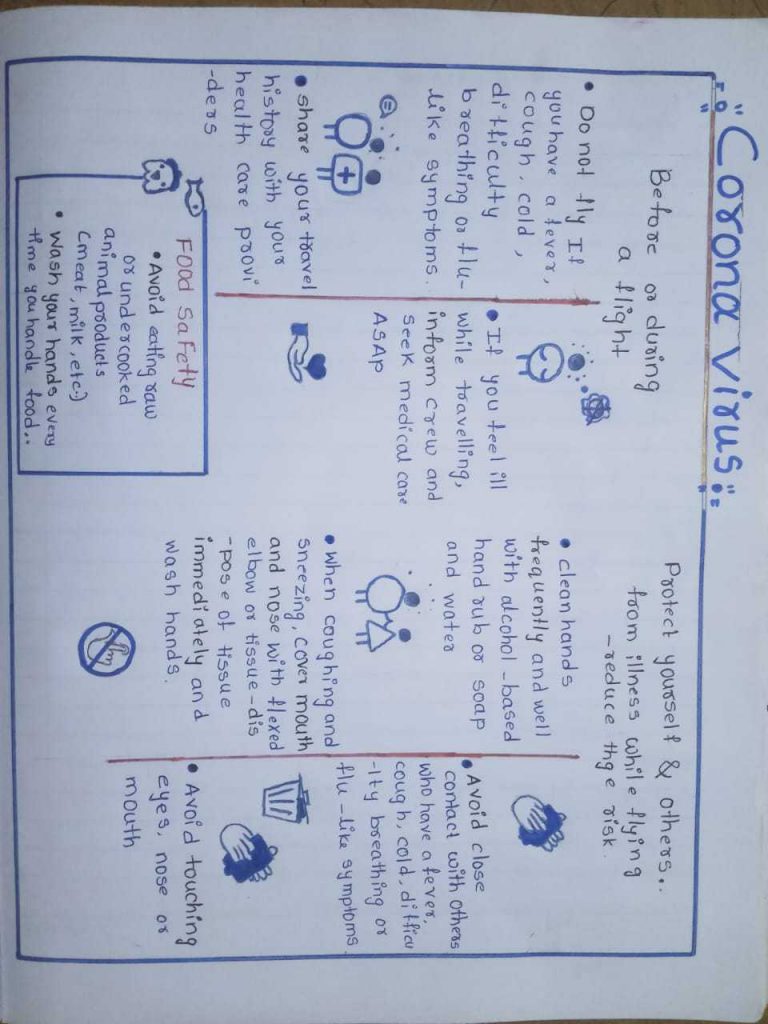 "Corona Virus"
Before or during
a flight
• Do not fly If
you have a fever,
cough, cold,
difficulty
breathing or flu-
like symptoms.
• share your travel
history with your
health care provi
-ders
• If you feel ill
while travelling,
inform crew and
seek medical care
ASAP
Food safety
• Avoid eating raw
or undercooked
animal products
(meat, milk, etc.)
• Wash your hands every
time you handle food..
Protect yourself & others..
from illness while flying
-reduce thge risk.
• clean hands
frequently and well
with alcohol-based
hand rub or soap
and water
• When coughing and
sneezing, cover mouth
and nose with flexed
elbow or tissue-dis
-pose of tissue
immediately and
wash hands.
• Avoid close
contact with others
who have a fever,
cough, cold, difficu
-lty breathing or
flu-like symptoms.
• Avoid touching
eyes, nose or
mouth